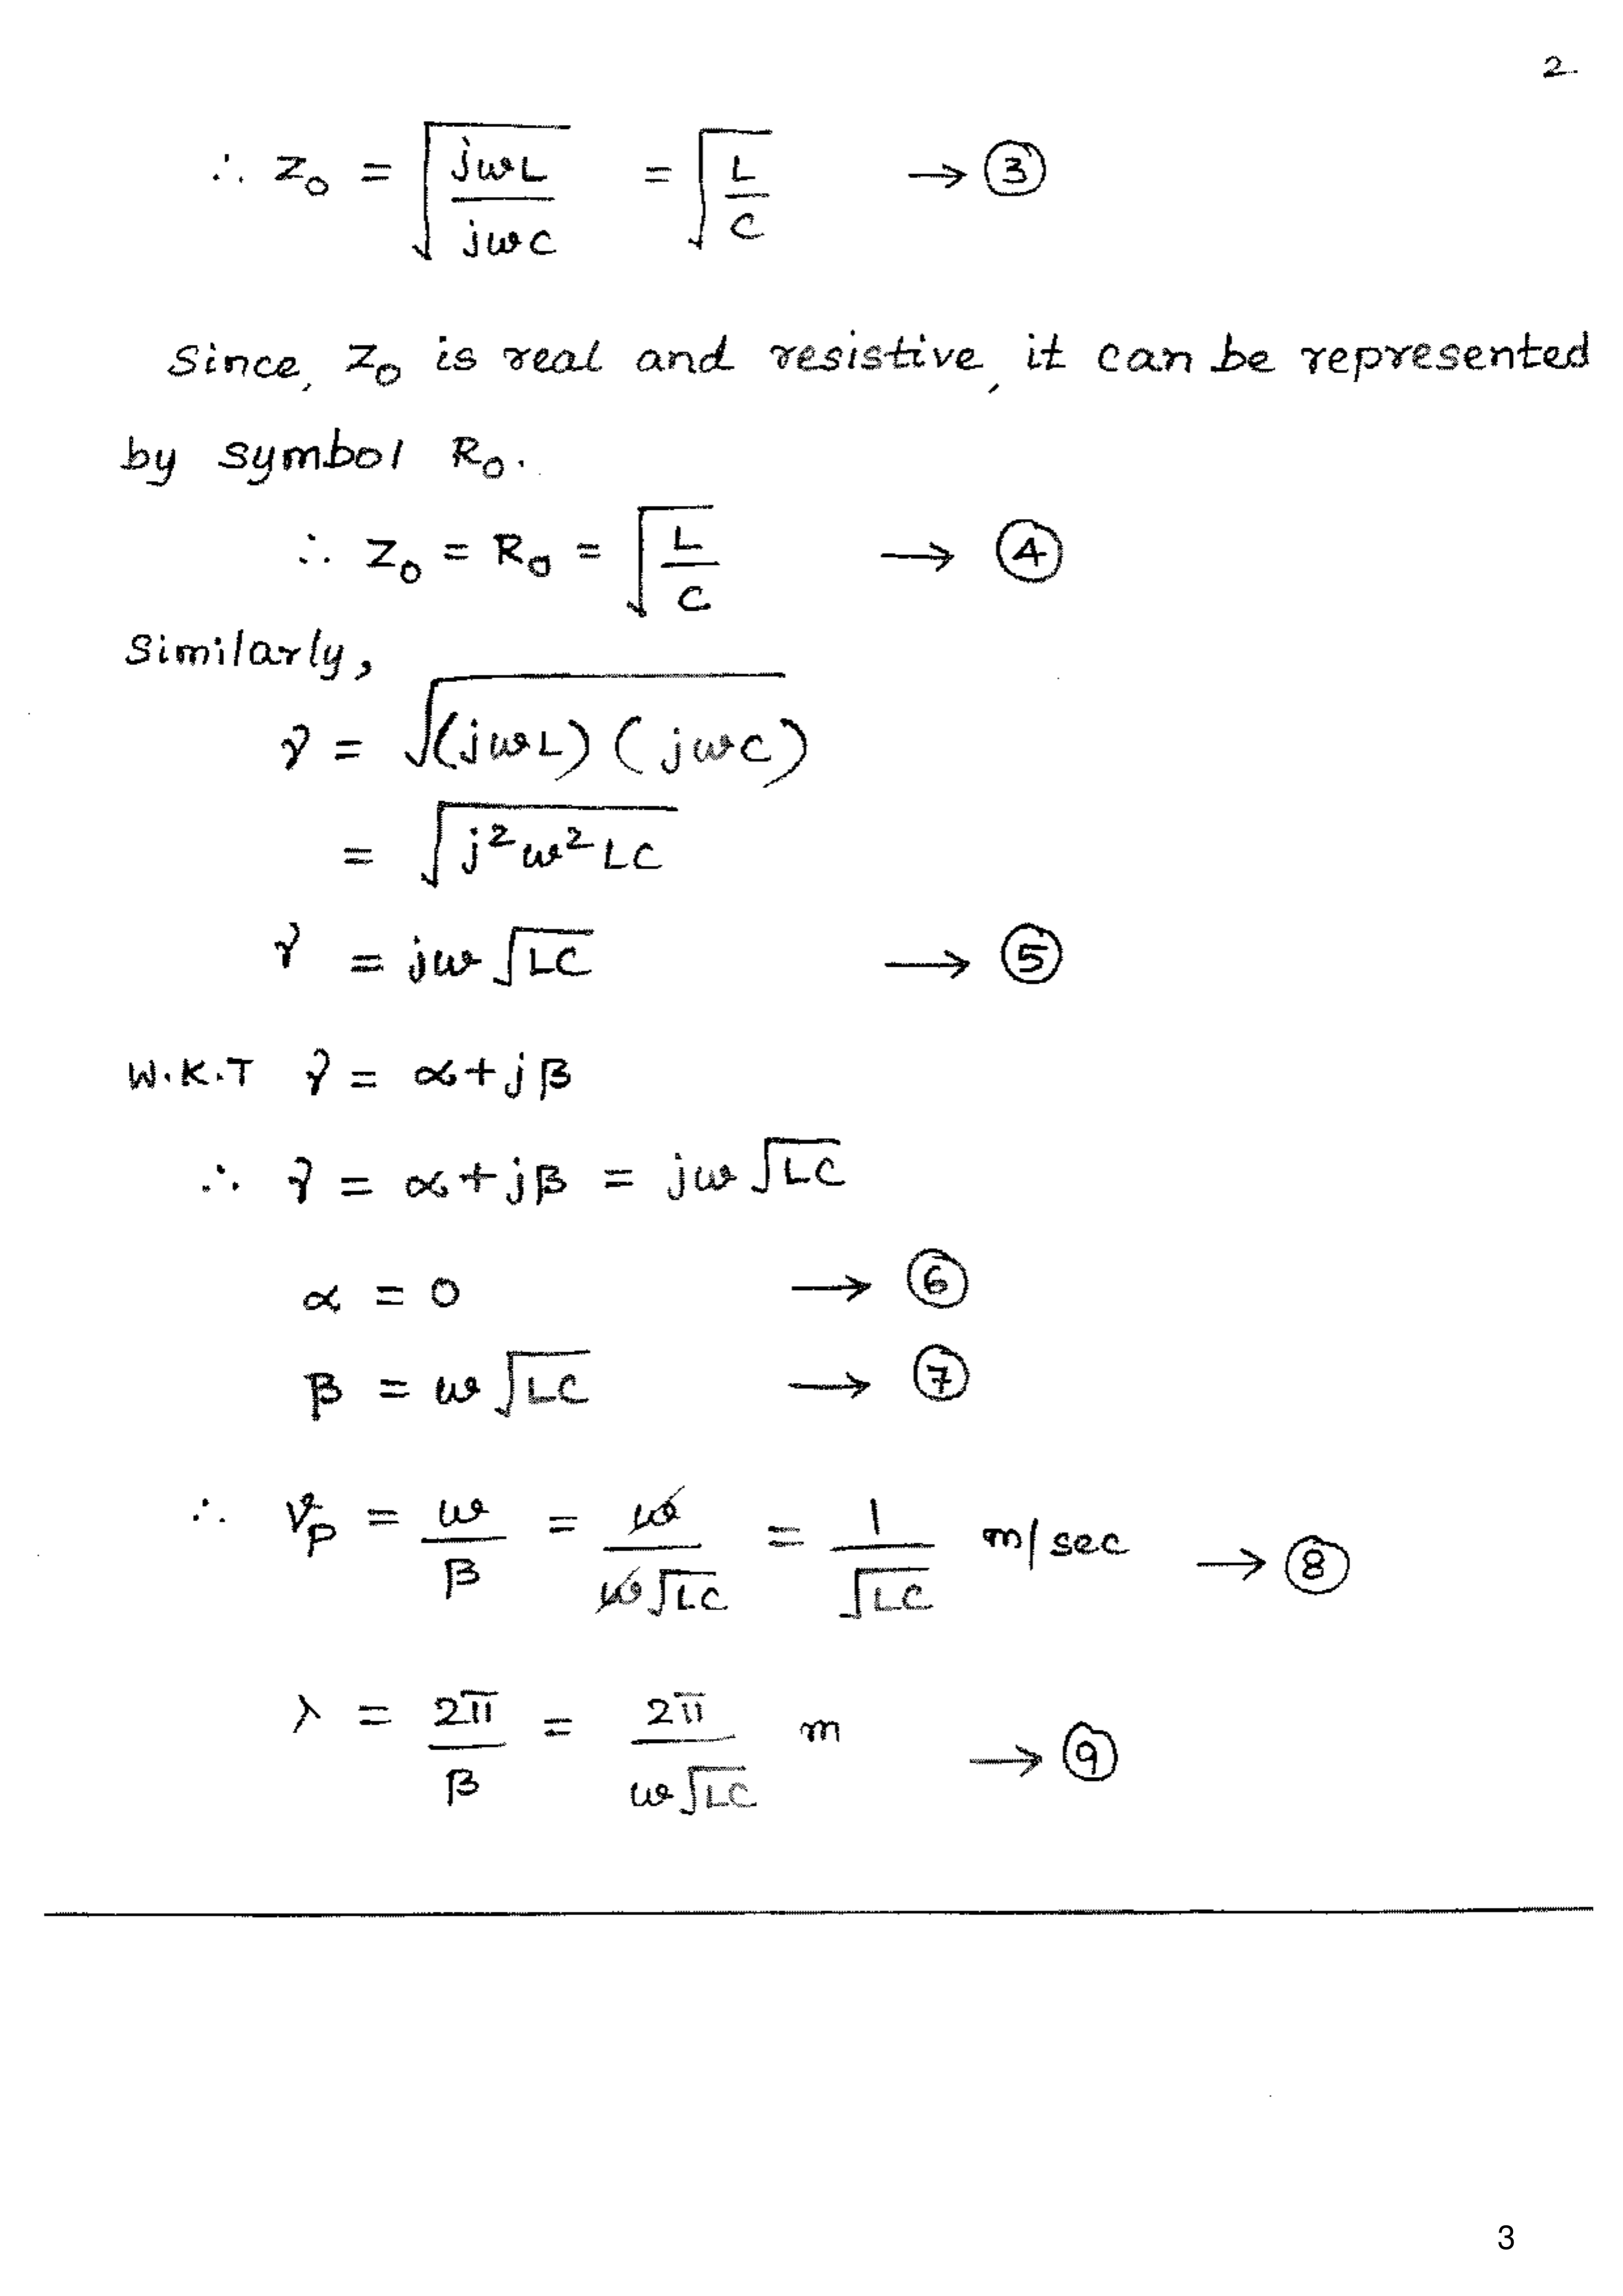 2.
∴ Z₀ = √(jωL / jωC) = √(L / C) → ③
Since, Z₀ is real and resistive, it can be represented
by symbol R₀.
∴ Z₀ = R₀ = √(L / C) → ④
Similarly,
γ = √((jωL) (jωC))
= √(j²ω²LC)
γ = jω√LC → ⑤
W.K.T γ = α+jβ
∴ γ = α+jβ = jω√LC
α = 0 → ⑥
β = ω√LC → ⑦
∴ Vp = ω / β = ω / ω√LC = 1 / √LC m/sec → ⑧
λ = 2π / β = 2π / ω√LC m → ⑨
3